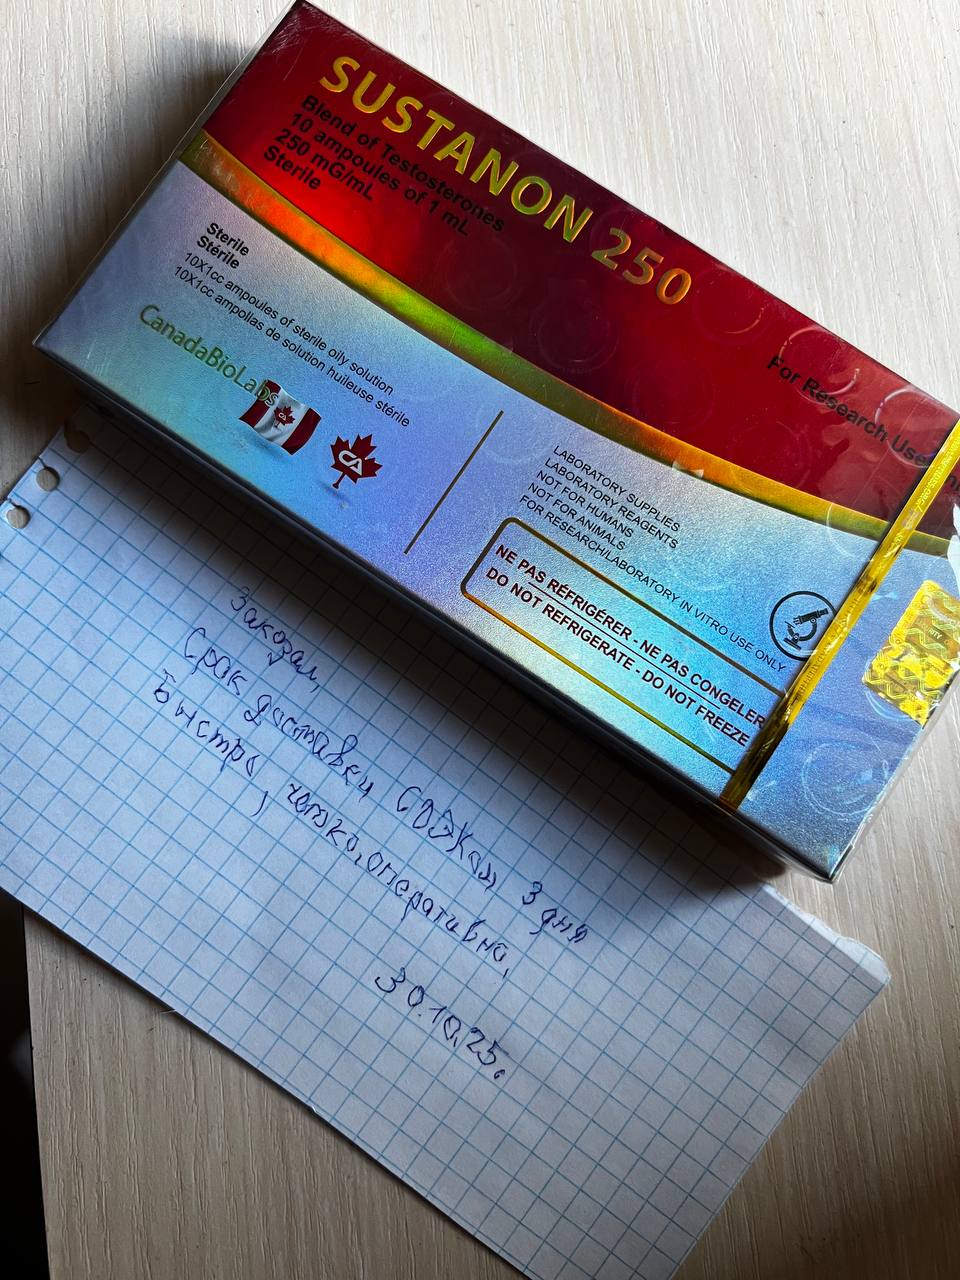 SUSTANON 250
Blend of Testosterones
10 ampoules of 1 mL
250 mG/mL
Sterile
For Research Use
Sterile
Stérile
10X1cc ampoules of sterile oily solution
10X1cc ampolias de solution huileuse stérile
CanadaBioLabs
CA
LABORATORY SUPPLIES
LABORATORY REAGENTS
NOT FOR HUMANS
NOT FOR ANIMALS
FOR RESEARCH/LABORATORY IN VITRO USE ONLY
NE PAS RÉFRIGÉRER - NE PAS CONGELER
DO NOT REFRIGERATE - DO NOT FREEZE
Заказал,
Срок доставки СДЭКом 3 дня
Быстро, четко, оперативно,
30.10.25.